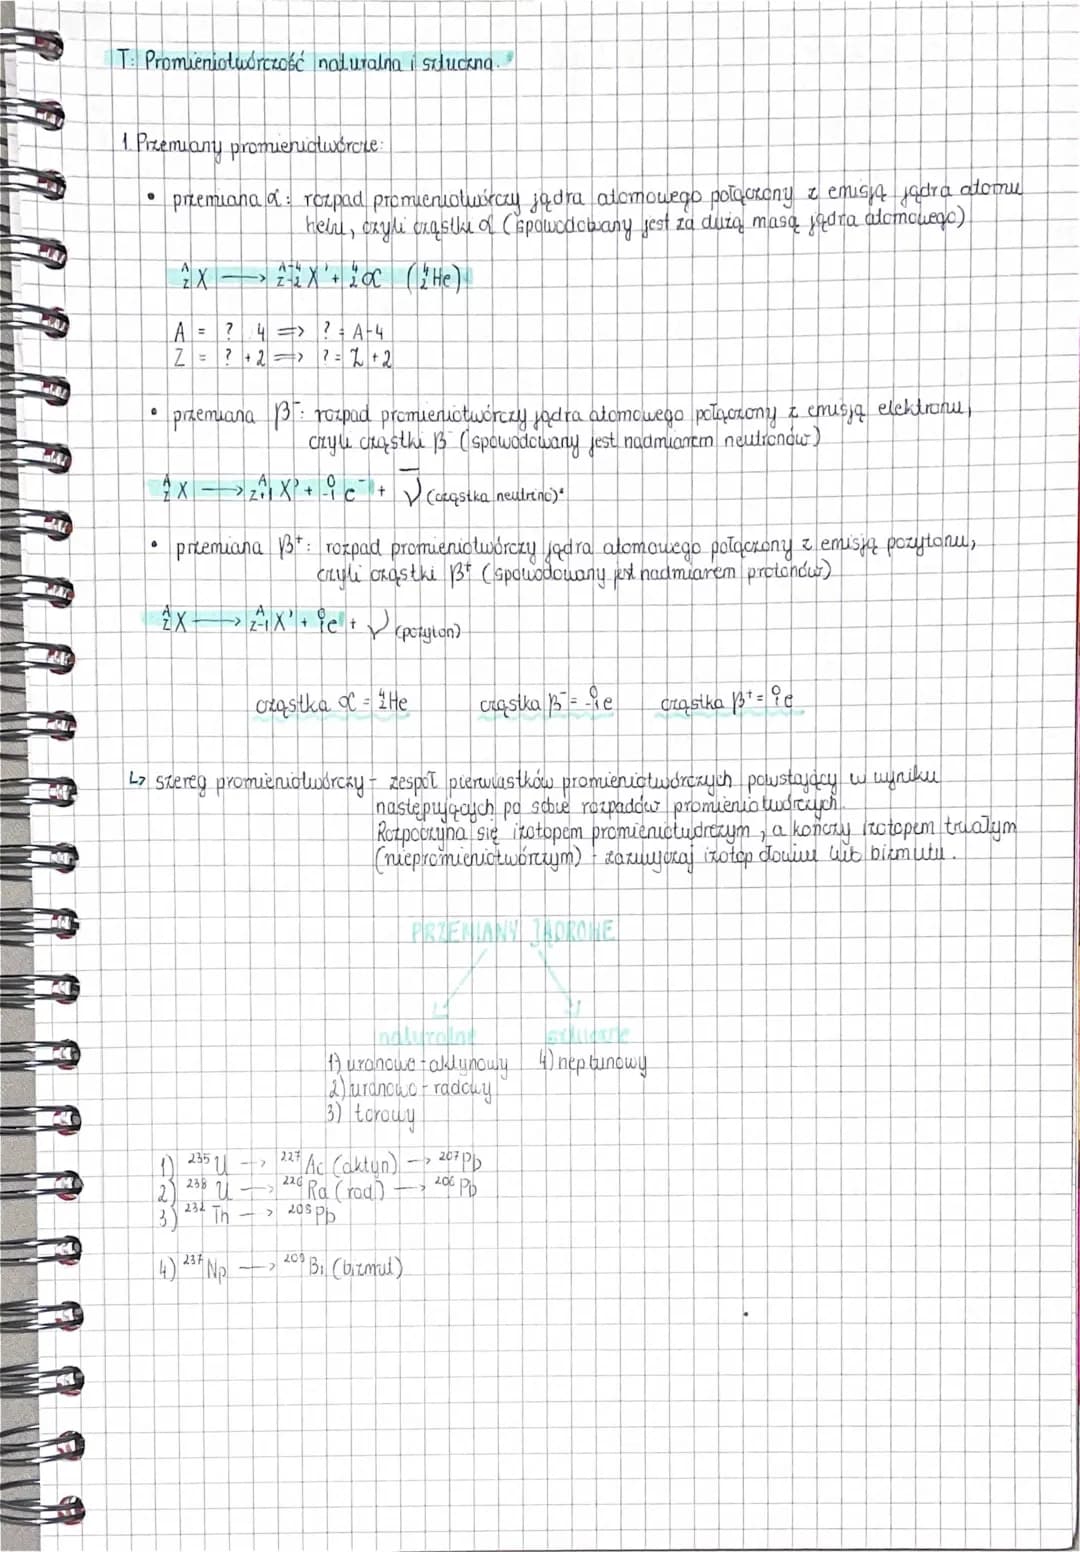 T: Promieniotwórczość naturalna i sztuczna.
1. Przemiany promieniotwórcze:
• przemiana α: rozpad promieniotwórczy jądra atomowego połączony z emisją jądra atomu
helu, czyli cząstki α (spowodowany jest za dużą masą jądra atomowego)
ᴬ_Z X ⟶ ᴬ⁻⁴_Z₋₂ X' + ⁴₂α (⁴₂He)
A = ? 4 => ? = A-4
Z = ? + 2 => ? = Z + 2
• przemiana β⁻: rozpad promieniotwórczy jądra atomowego połączony z emisją elektronu,
czyli cząstki β⁻ (spowodowany jest nadmiarem neutronów)
ᴬ_Z X ⟶ ᴬ_Z+1 X' + ⁰₋₁e⁻ + ν̅ (cząstka neutrino)
• przemiana β⁺: rozpad promieniotwórczy jądra atomowego połączony z emisją pozytonu,
czyli cząstki β⁺ (spowodowany jest nadmiarem protonów)
ᴬ_Z X ⟶ ᴬ_Z-1 X' + ⁰₁e + ν (pozyton)
cząstka α = ⁴₂He cząstka β⁻ = ⁰₋₁e cząstka β⁺ = ⁰₁e
↳ szereg promieniotwórczy - zespół pierwiastków promieniotwórczych powstający w wyniku
następujących po sobie rozpadów promieniotwórczych.
Rozpoczyna się izotopem promieniotwórczym, a kończy izotopem trwałym
(niepromieniotwórczym) - zazwyczaj izotop ołowiu lub bizmutu.
PRZEMIANY JĄDROWE
naturalne sztuczne
1) uranowo-aktynowy 4) neptunowy
2) uranowo-radowy
3) torowy
1) ²³⁵U → ²²⁷Ac (aktyn) → ²⁰⁷Pb
2) ²³⁸U → ²²⁶Ra (rad) → ²⁰⁶Pb
3) ²³²Th → ²⁰⁸Pb
4) ²³⁷Np → ²⁰⁹Bi (bizmut)